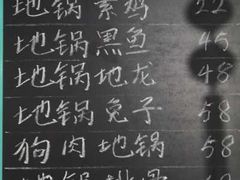 地锅素鸡 22
地锅黑鱼 45
地锅地龙 48
地锅兔子 58
狗肉地锅 58
地锅排骨